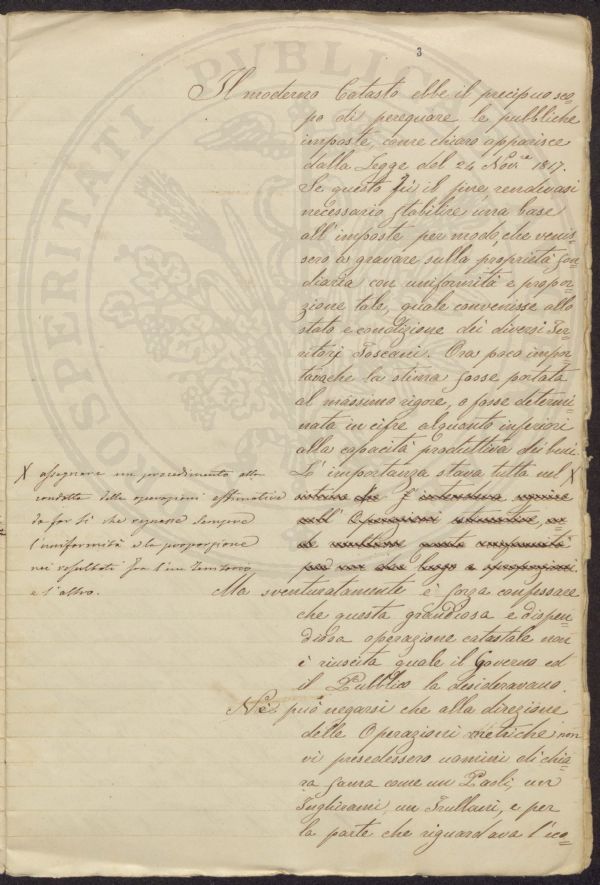 3
Il moderno Catasto ebbe il precipuo sco-
po di perequare le pubbliche
imposte, come chiaro apparisce
dalla Legge del 24 Nov.re 1817.
Se questo fù il fine, rendevasi
necessario stabilire una base
all'imposte per modo, che venis-
sero a gravare sulla proprietà fon-
diaria con uniformità e propor-
zione tale, quale convenisse allo
stato e condizione dei diversi Ter-
ritorj Toscani. Ora poco impor-
tava che la stima fosse portata
al massimo rigore, o fosse determi-
nata in cifre alquanto inferiori
alla capacità produttiva dei beni.
L'importanza stava tutta nel X
X assegnare un procedimento alla
condotta delle operazioni estimative
da far sì che regnasse sempre
l'uniformità e la proporzione
nei resultati fra l'un Territorio
e l'altro.
Ma sventuratamente è forza confessare
che questa grandiosa e dispen-
diosa operazione catastale non
è riuscita quale il Governo ed
il Pubblico la desideravano.
Nè può negarsi che alla direzione
delle Operazioni metriche non
vi presedessero uomini di chia-
ra fama come un Paoli, un
Inghirami, un Trullani, e per
la parte che riguardava l'eco-
PUBLICAE
PROSPERITATI